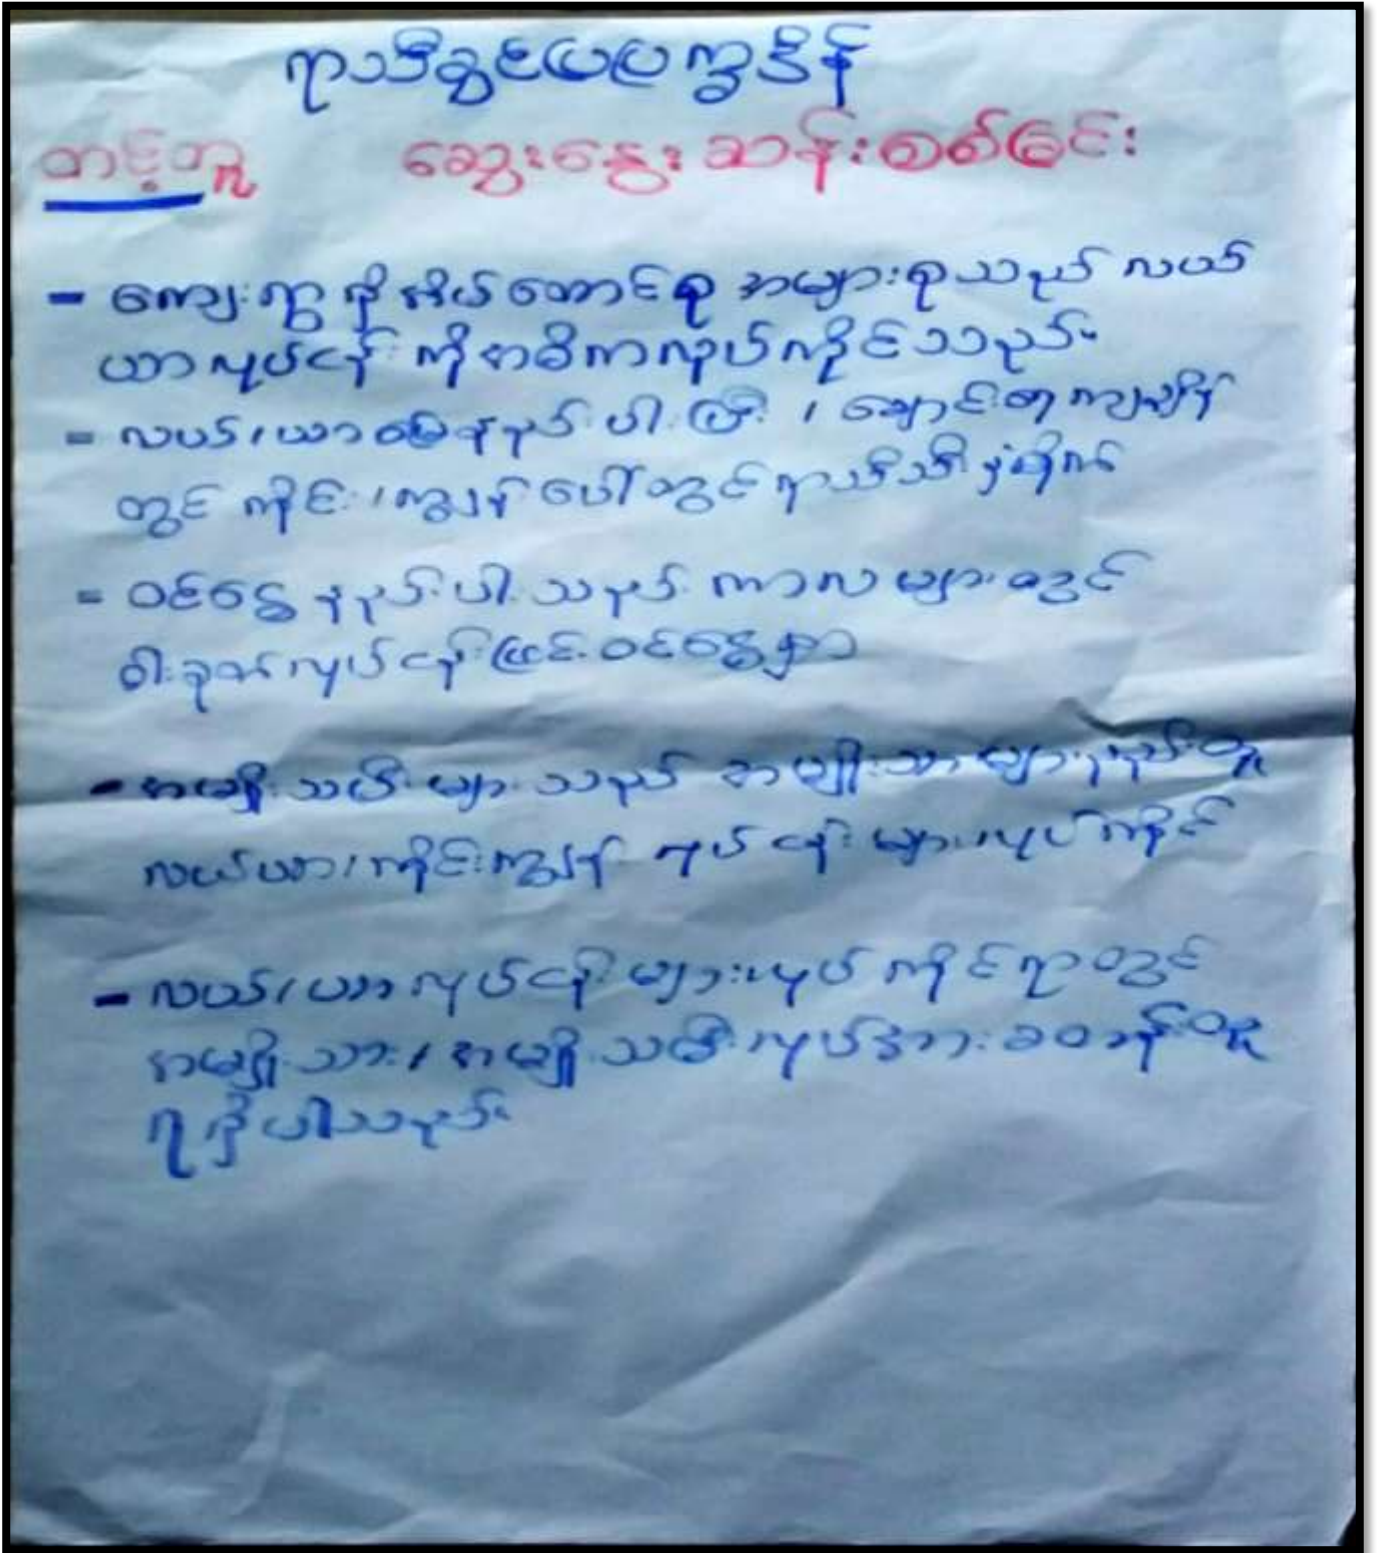 ရာသီခွင်ပြပြက္ခဒိန်
တင့်ကူ ဆွေးနွေးဆန်းစစ်ခြင်း
- ကျေးရွာရှိအိမ်ထောင်စု အများစုသည် လယ်
ယာလုပ်ငန်းကိုအဓိကလုပ်ကိုင်သည်။
- လယ်/ယာမြေနည်းပါးပြီး / ချောင်းရေကျချိန်
တွင် ကိုင်း/ကျွန်းပေါ်တွင်ရာသီသီးနှံစိုက်
- ဝင်ငွေနည်းပါးသည့်ကာလများတွင်
ဝါးခုတ်လုပ်ငန်းဖြင့်ဝင်ငွေရှာ
- အမျိုးသမီးများသည် အမျိုးသားများနည်းတူ
လယ်ယာ/ကိုင်းကျွန်းလုပ်ငန်းများလုပ်ကိုင်
- လယ်/ယာလုပ်ငန်းများလုပ်ကိုင်ရာတွင်
အမျိုးသား/အမျိုးသမီးလုပ်အားခတန်းတူ
ရရှိပါသည်။